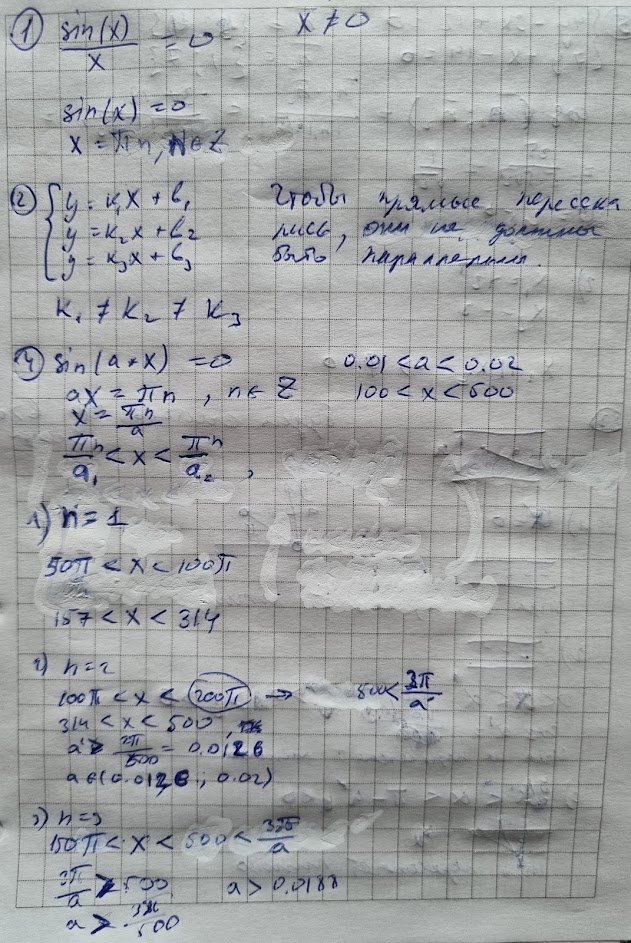 1 sin(x)/x = 0 x ≠ 0
sin(x) = 0
x = πn, n∈Z
2 { y = k₁x + b₁ Чтобы прямые пересека
y = k₂x + b₂ лись, они не должны
y = k₃x + b₃ быть параллельны.
k₁ ≠ k₂ ≠ k₃
4 sin(a*x) = 0 0.01 < a < 0.02
ax = πn, n∈Z 100 < x < 500
x = πn/a
πn/a₁ < x < πn/a₂,
1) n = 1
50π < x < 100π
157 < x < 314
2) n = 2
100π < x < 200π → 500 < 3π/a
314 < x < 500,
a > 2π/500 = 0.0126
a∈(0.0126; 0.02)
3) n = 3
150π < x < 500 < 3π/a
3π/a > 500, a > 0.0188
a > 3π/500